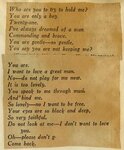 Who are you to try to hold me?
You are only a boy.
Twenty-one.
I've always dreamed of a man
Commanding and brave.
You are gentle—so gentle,
You say you are not keeping me?
You are.
I want to love a great man.
No—do not play for me now.
It is too lovely.
You speak to me through music.
And' kind me.
So lovely—no I want to be free.
Your eyes are so black and deep,
So very faithful.
Do not look at me—I don't want to love
you.
Oh—please don't g
Come back.